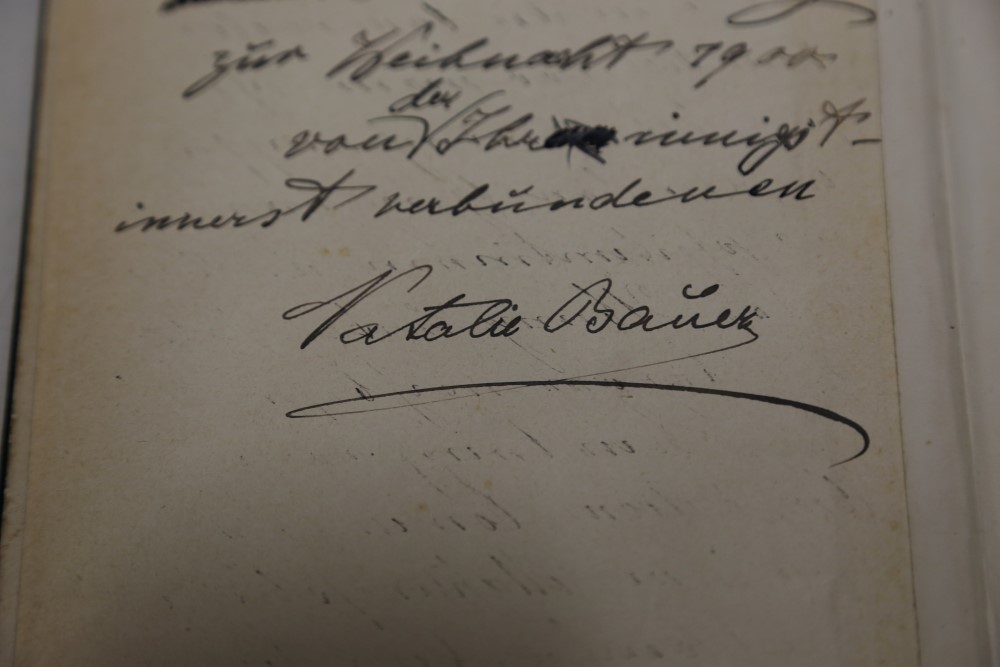 zur Weihnacht 1900
der
von Ihr innigst-
innerst verbündenen
Natalie Bauer